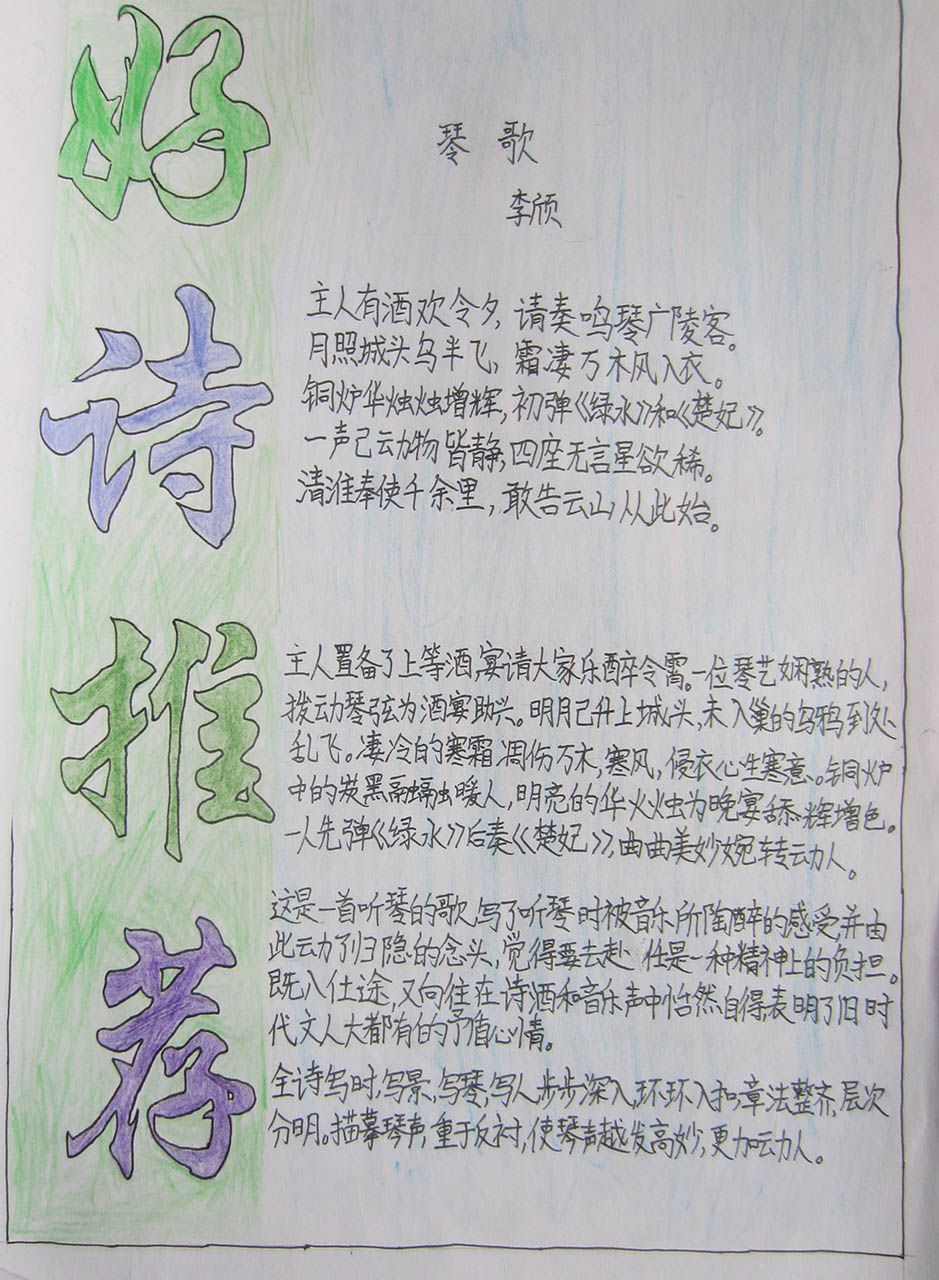 好诗推荐
琴歌
李颀
主人有酒欢令夕,请奏鸣琴广陵客。
月照城头乌半飞,霜凄万木风入衣。
铜炉华烛烛增辉,初弹《绿水》和《楚妃》。
一声已动物皆静,四座无言星欲稀。
清淮奉使千余里,敢告云山从此始。
主人置备了上等酒,宴请大家乐醉令霄。一位琴艺娴熟的人,
拨动琴弦为酒宴助兴。明月已升上城头,未入巢的乌鸦到处
乱飞。凄冷的寒霜凋伤万木,寒风,侵衣心生寒意。铜炉
中的炭黑融融暖人,明亮的华火烛为晚宴舔辉增色。
一人先弹《绿水》后奏《楚妃》,曲曲美妙婉转动人。
这是一首听琴的歌,写了听琴时被音乐所陶醉的感受,并由
此动了归隐的念头,觉得要去赴 任是一种精神上的负担。
既入仕途,又向往在诗酒和音乐声中怡然自得表明了旧时
代文人大都有的矛盾心情。
全诗写时,写景,写琴,写人步步深入,环环入扣,章法整齐,层次
分明。描摹琴声,重于反衬,使琴声越发高妙,更加动人。